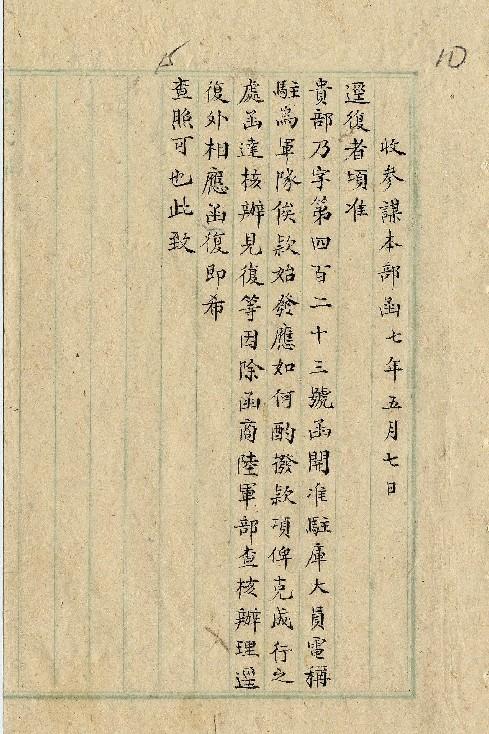 10
5
收參謀本部函七年五月七日
逕復者頃准
貴部乃字第四百二十三號函開准駐庫大員電稱
駐烏軍隊俟款始發應如何酌撥款項俾克成行之
處函達核辦見復等因除函商陸軍部查核辦理逕
復外相應函復即希
查照可也此致